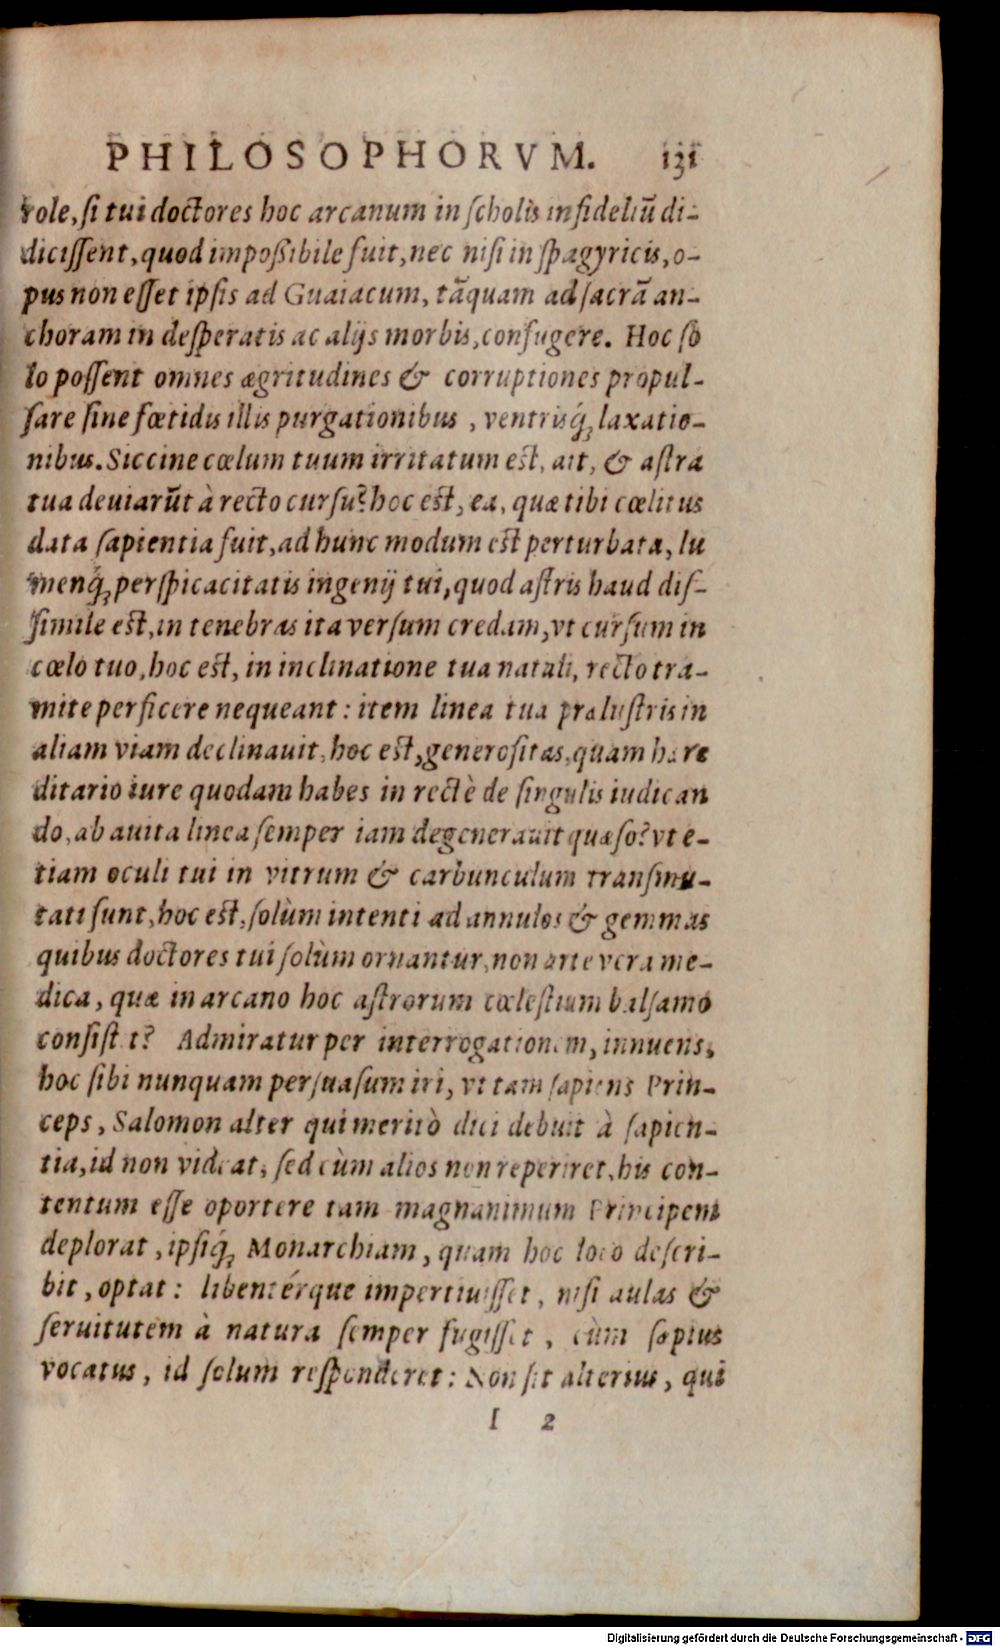 PHILOSOPHORVM. 131
role, ſi tui doctores hoc arcanum in ſcholis infideliũ di-
diciſſent, quod impoßibile fuit, nec niſi in ſpagyricis, o-
pus non eſſet ipſis ad Guaiacum, tãquam ad ſacrã an-
choram in deſperatis ac alijs morbis, confugere. Hoc ſo
lo poſſent omnes ægritudines & corruptiones propul-
ſare ſine fœtidis illis purgationibus, ventrisq́; laxatio-
nibus. Siccine cœlum tuum irritatum est, ait, & aſtra
tua deuiarũt à recto curſu? hoc est, ea, quæ tibi cœlitus
data ſapientia fuit, ad hunc modum est perturbata, lu
menq́; perſpicacitatis ingenij tui, quod aſtris haud diſ-
ſimile est, in tenebras ita verſum credam, vt curſum in
cœlo tuo, hoc est, in inclinatione tua natali, recto tra-
mite perficere nequeant: item linea tua præluſtris in
aliam viam declinauit, hoc est, generoſitas, quam hære
ditario iure quodam habes in rectè de ſingulis iudican
do, ab auita linea ſemper iam degenerauit quæſo? vt e-
tiam oculi tui in vitrum & carbunculum tranſmu-
tati ſunt, hoc est, ſolùm intenti ad annulos & gemmas
quibus doctores tui ſolùm ornantur, non arte vera me-
dica, quæ in arcano hoc aſtrorum cœleſtium balſamo
conſiſtit? Admiratur per interrogationem, innuens,
hoc ſibi nunquam perſuaſum iri, vt tam ſapiens Prin-
ceps, Salomon alter qui meritò dici debuit à ſapien-
tia, id non videat, ſed cùm alios non reperiret, his con-
tentum eſſe oportere tam magnanimum Principem
deplorat, ipſiq́; Monarchiam, quam hoc loco deſcri-
bit, optat: libentérque impertiuiſſet, niſi aulas &
ſeruitutem à natura ſemper fugiſſet, cùm ſæpius
vocatus, id ſolum reſponderet: Non ſit alterius, qui
I 2
Digitalisierung gefördert durch die Deutsche Forschungsgemeinschaft - DFG